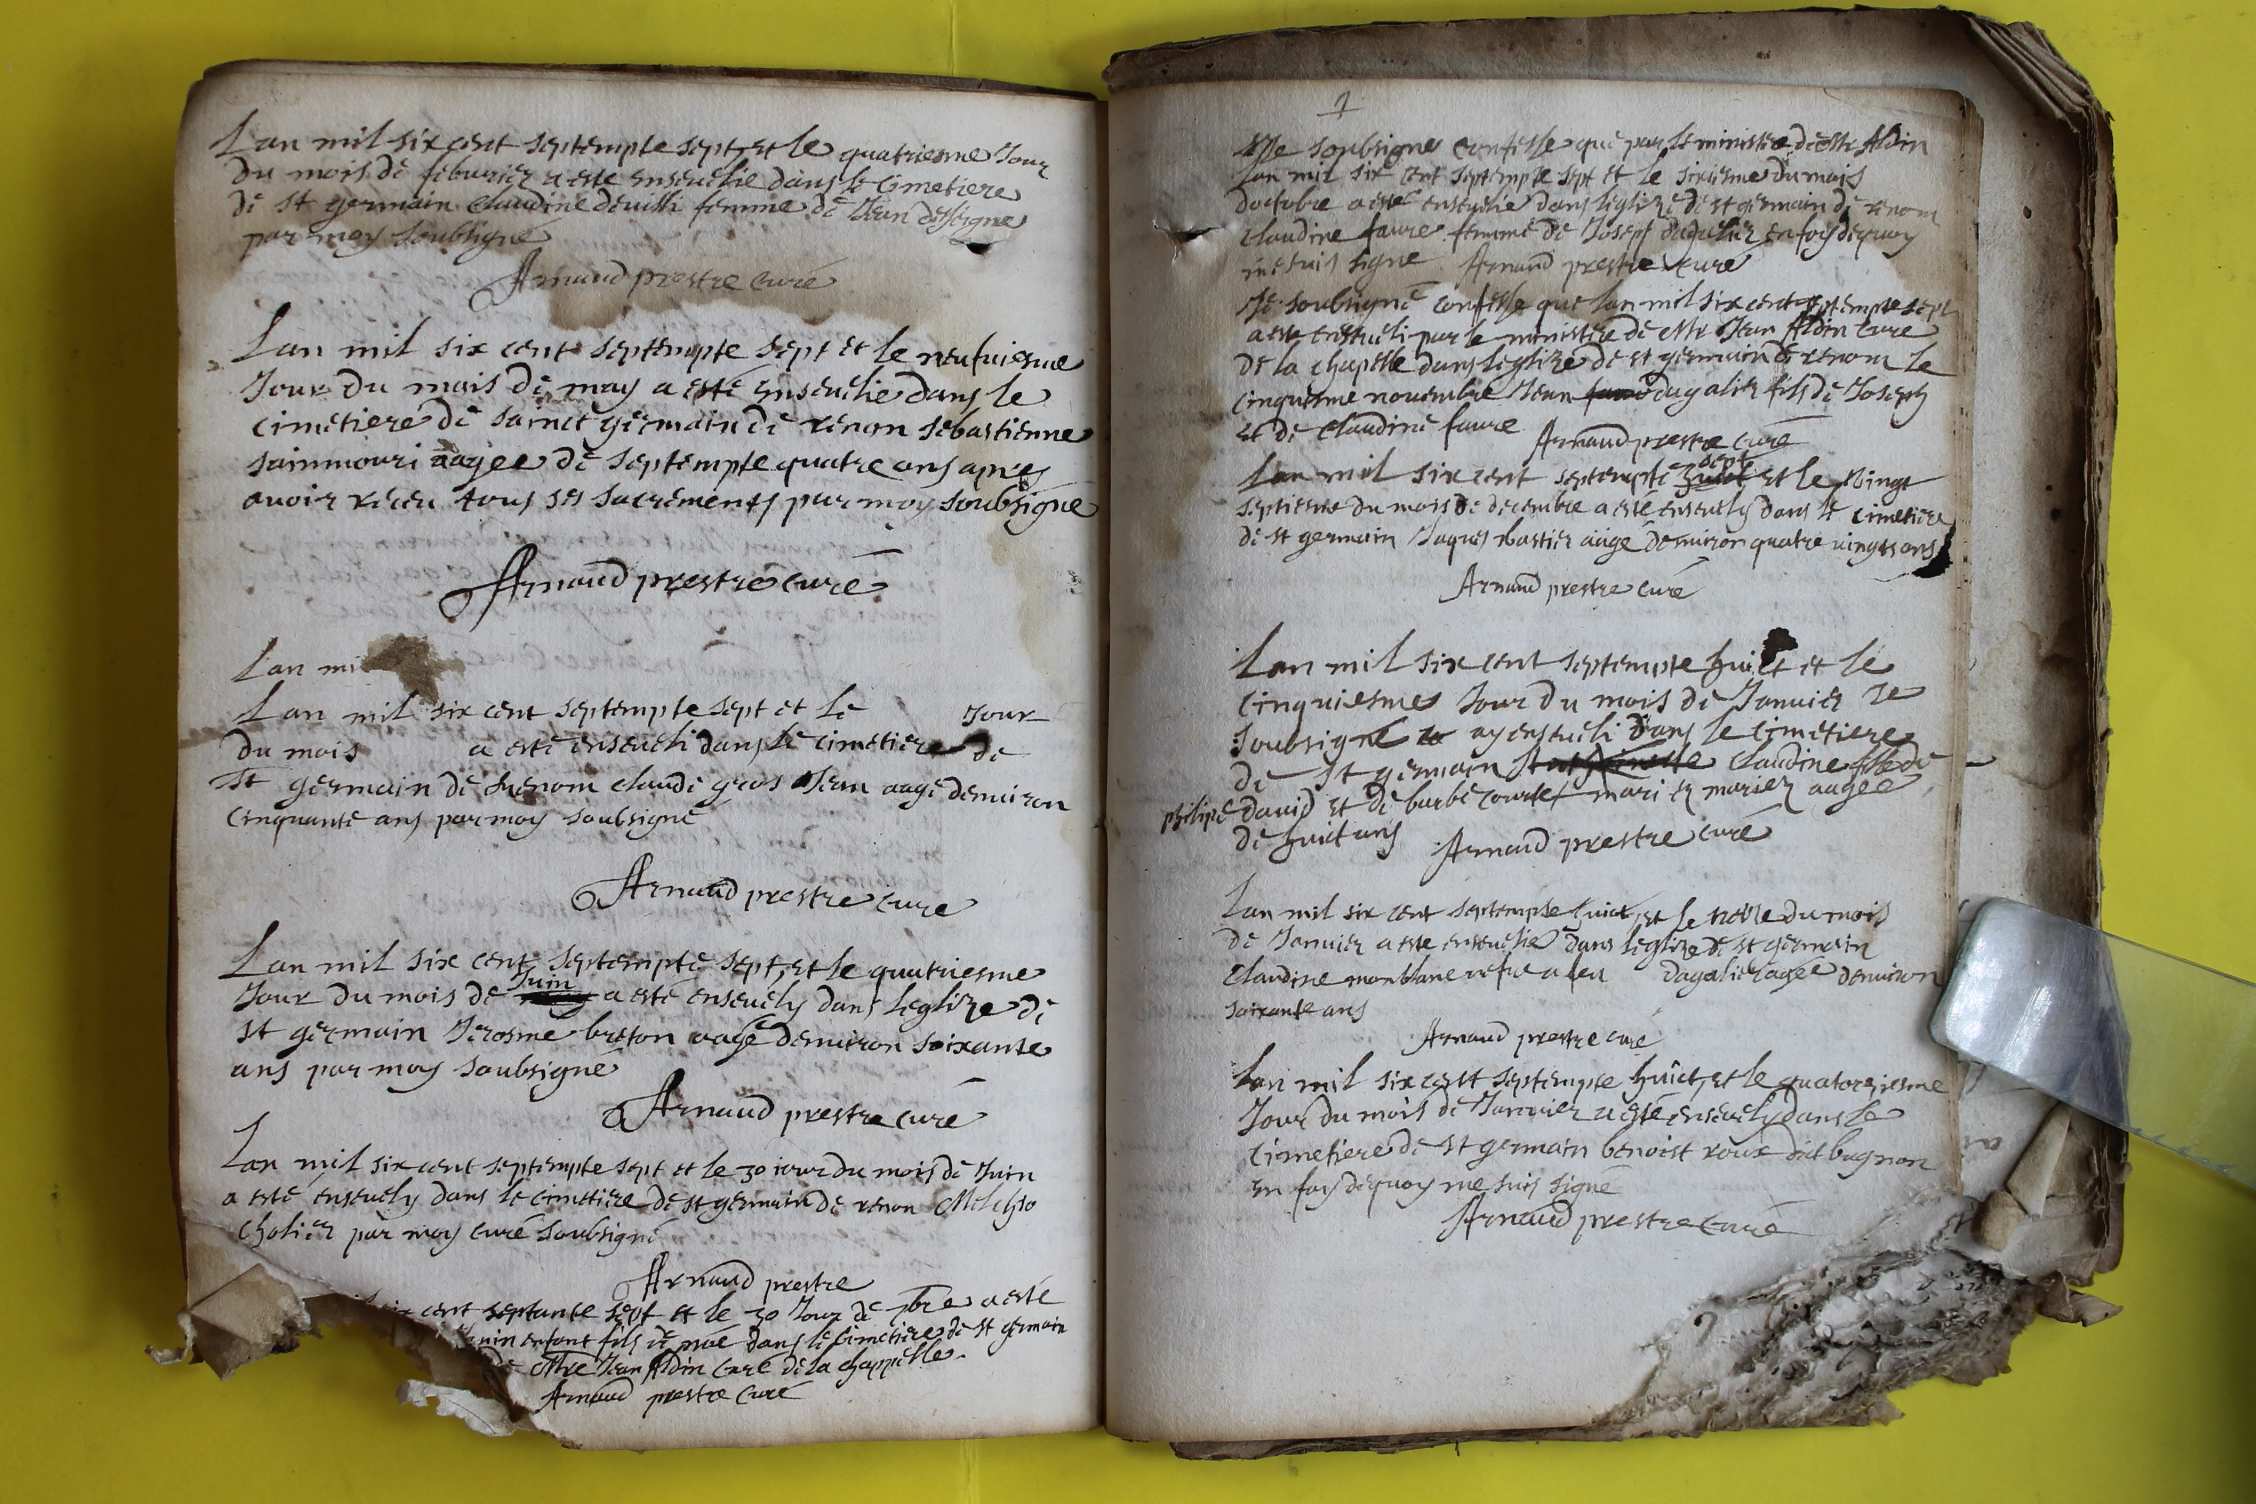 Lan mil six cent septempte sept, et le quatriesme Jour
du mois de feburier a este ensevelie dans le cimetiere
de st germain Claudine deuilli femme de Jean
par moy soubsigne
Arnaud prestre curé
Lan mil six cent septempte sept et le neufuiesme
Jour du mois de may a esté ensevelie dans le
cimetiere de sainct germain de renon sebastienne
sainmouri aagee de septempte quatre ans apres
avoir receu tous ses sacrements par moy soubsigné
Arnaud prestre curé
Lan mi
Lan mil six cent septempte sept et le Jour
du mois a esté enseveli dans le cimetiere de
St germain de Renom claude gros Jean aagé denuiron
cinquante ans par moy soubsigné
Arnaud prestre curé
Lan mil six cent septempte sept, et le quatriesme
Jour du mois de Juin a esté ensevely dans leglize de
st germain Jerosme breton aagé denuiron soixante
ans par moy soubsigné
Arnaud prestre curé
Lan mil six cent septempte sept et le 30 iour du mois de Juin
a esté ensevely dans le cimetiere de st germain de renon Melchio
cholier par moy curé soubsigné
Arnaud prestre
cent septante sept et le 30 Jour de 7bre a esté
enfant fils de dans le cimetiere de st germain
de Mre Jean Aldin curé de la chappelle
Arnaud prestre curé
1
Je soubsigne confesse que par le ministere de Mr Aldin
Lan mil six cent septempte sept et le sixiesme du mois
doctobre a esté ensevelie dans leglize de st germain de renom
claudine faure femme de Josept dagalier en foy dequoy
me suis signe Arnaud prestre curé
Je soubsigné confesse que lan mil six cent septempte sept
a este enseveli par le ministere de Mr Jean Aldin cure
de la chapelle dans leglize de st germain de renom le
cinquiesme nouembre Jean dagalier fils de Joseph
et de Claudine faure Arnaud prestre curé
Lan mil six cent septempte sept et le vingt
septiesme du mois de decembre a esté ensevely dans le cimetiere
de st germain Jaques bastier aagé denuiron quatre vingts ans
Arnaud prestre curé
Lan mil six cent septempte huict et le
cinquiesme Jour du mois de Januier Je
soubsigné ay enseveli dans le cimetiere
de st germain Claudine fille de
philipe dauid et de barbe mari et mariez aagee
de huict ans Arnaud prestre curé
Lan mil six cent septempte huict et le traize du mois
de Januier a este ensevelie dans leglize de st germain
Claudine monblanc vefve a feu dagalier agée denuiron
soixante ans
Arnaud prestre curé
Lan mil six cent septempte huict, et le quatorziesme
Jour du mois de Januier a esté ensevely dans le
cimetiere de st germain benoist roux dit bugnon
en foy dequoy me suis signé
Arnaud prestre curé